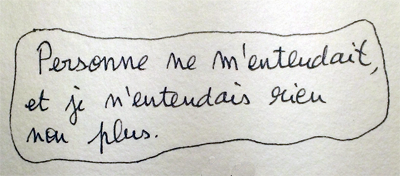 Personne ne m'entendait,
et je n'entendais rien
non plus.